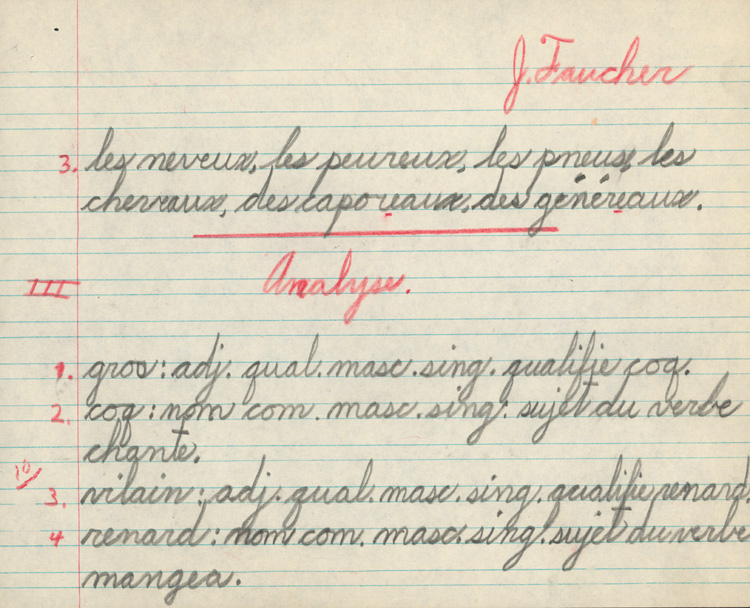 J. Faucher
3. les neveux, les peureux, les pneus, les
chevaux, des caporeaux, des généreaux.
III Analyse.
1. gros : adj. qual. masc. sing. qualifie coq.
2. coq : nom com. masc. sing. sujet du verbe
chante.
10
3. vilain : adj. qual. masc. sing. qualifie renard.
4 renard : nom com. masc. sing. sujet du verbe
mangea.